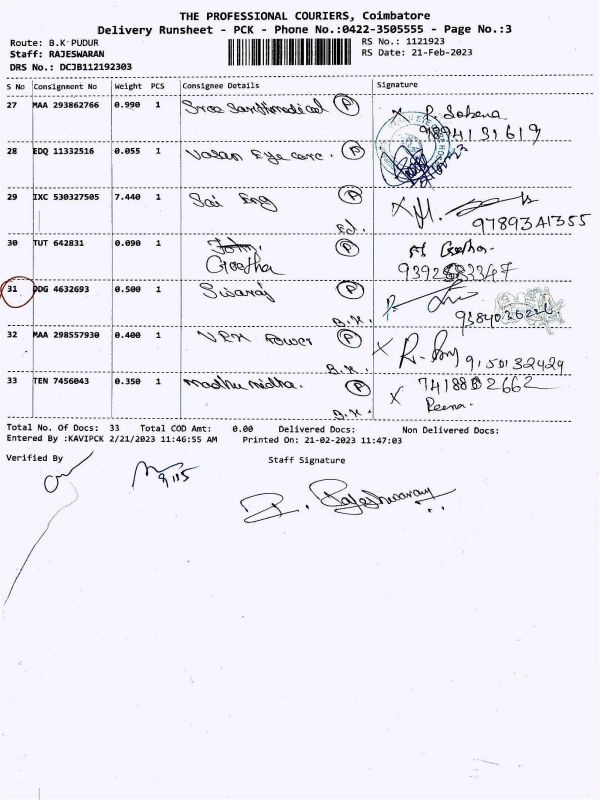 THE PROFESSIONAL COURIERS, Coimbatore
Delivery Runsheet - PCK - Phone No.:0422-3505555 - Page No.:3
Route: B.K PUDUR
RS No.: 1121923
Staff: RAJESWARAN
RS Date: 21-Feb-2023
DRS No.: DCJB112192303
S No Consignment No Weight PCS Consignee Details Signature
27 MAA 293862766 0.990 1 P R.
28 EDQ 11332516 0.055 1 Vasan Eye care. P
29 IXC 530327505 7.440 1 Sai Eng P
9789341355
30 TUT 642831 0.090 1 John. P Geetha
Geetha
31 DDG 4632693 0.500 1 P
B.K.
32 MAA 298557930 0.400 1 Power P 9150132429
B.K.
33 TEN 7456043 0.350 1 Madhu nidha. P
B.K.
Total No. Of Docs: 33 Total COD Amt: 0.00 Delivered Docs: Non Delivered Docs:
Entered By :KAVIPCK 2/21/2023 11:46:55 AM Printed On: 21-02-2023 11:47:03
Verified By Staff Signature